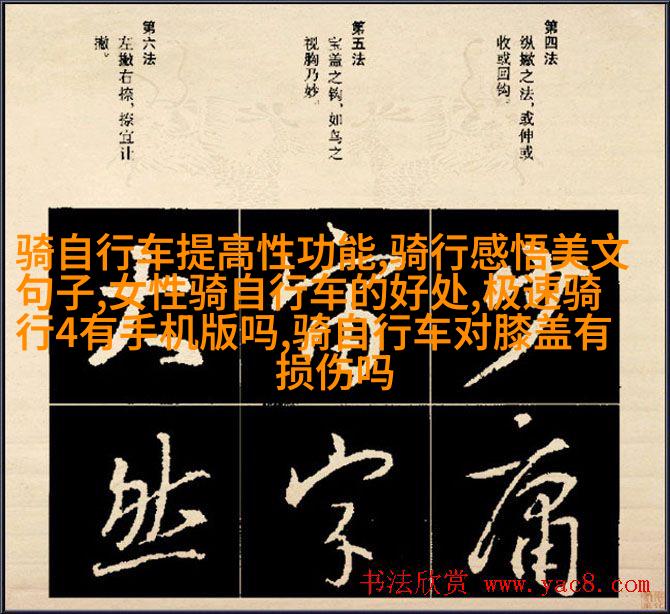 第四法
纵撇之法,或伸或
收或回钩。
第五法
宝盖之钩,如鸟之
视胸乃妙。
第六法
左撇右捺,捺宜让
撇。
骑自行车提高性功能,骑行感悟美文
句子,女性骑自行车的好处,极速骑
行4有手机版吗,骑自行车对膝盖有
损伤吗
庸 字 然
书法欣赏 www.yac8.com